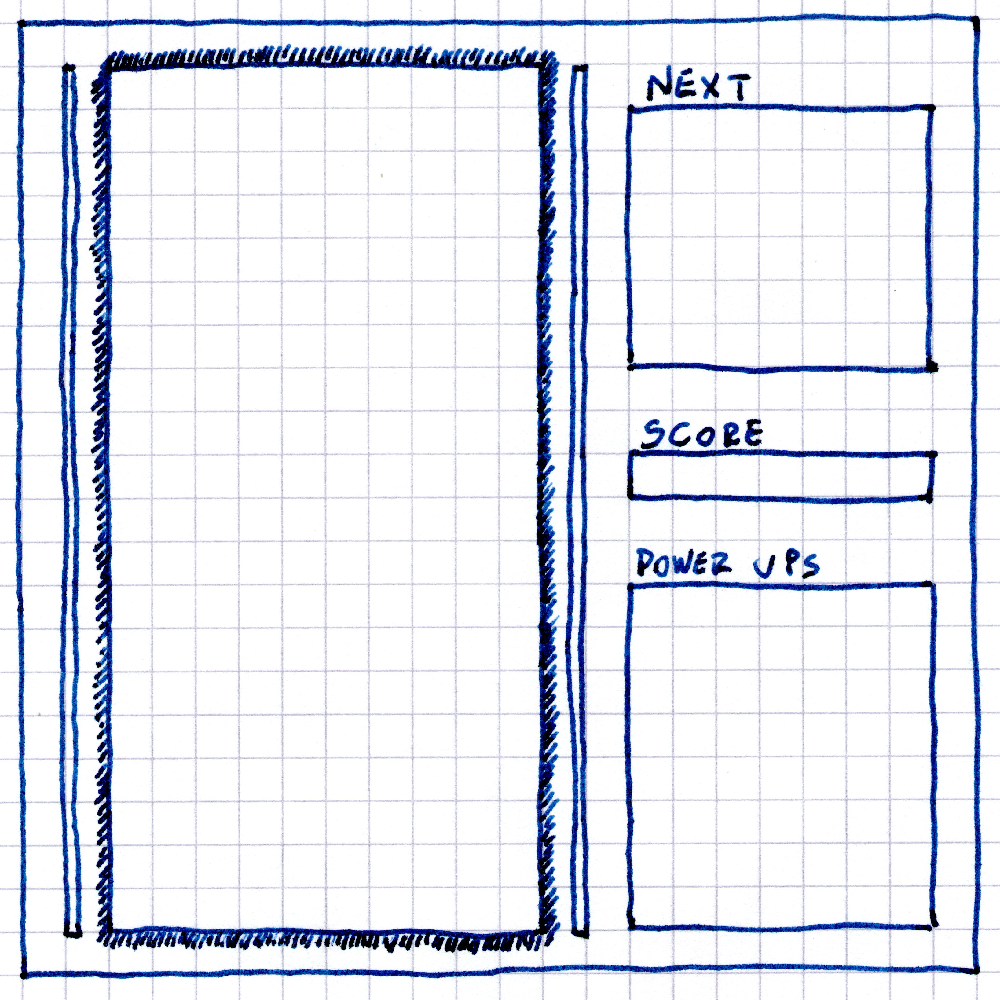 NEXT
SCORE
POWER UPS